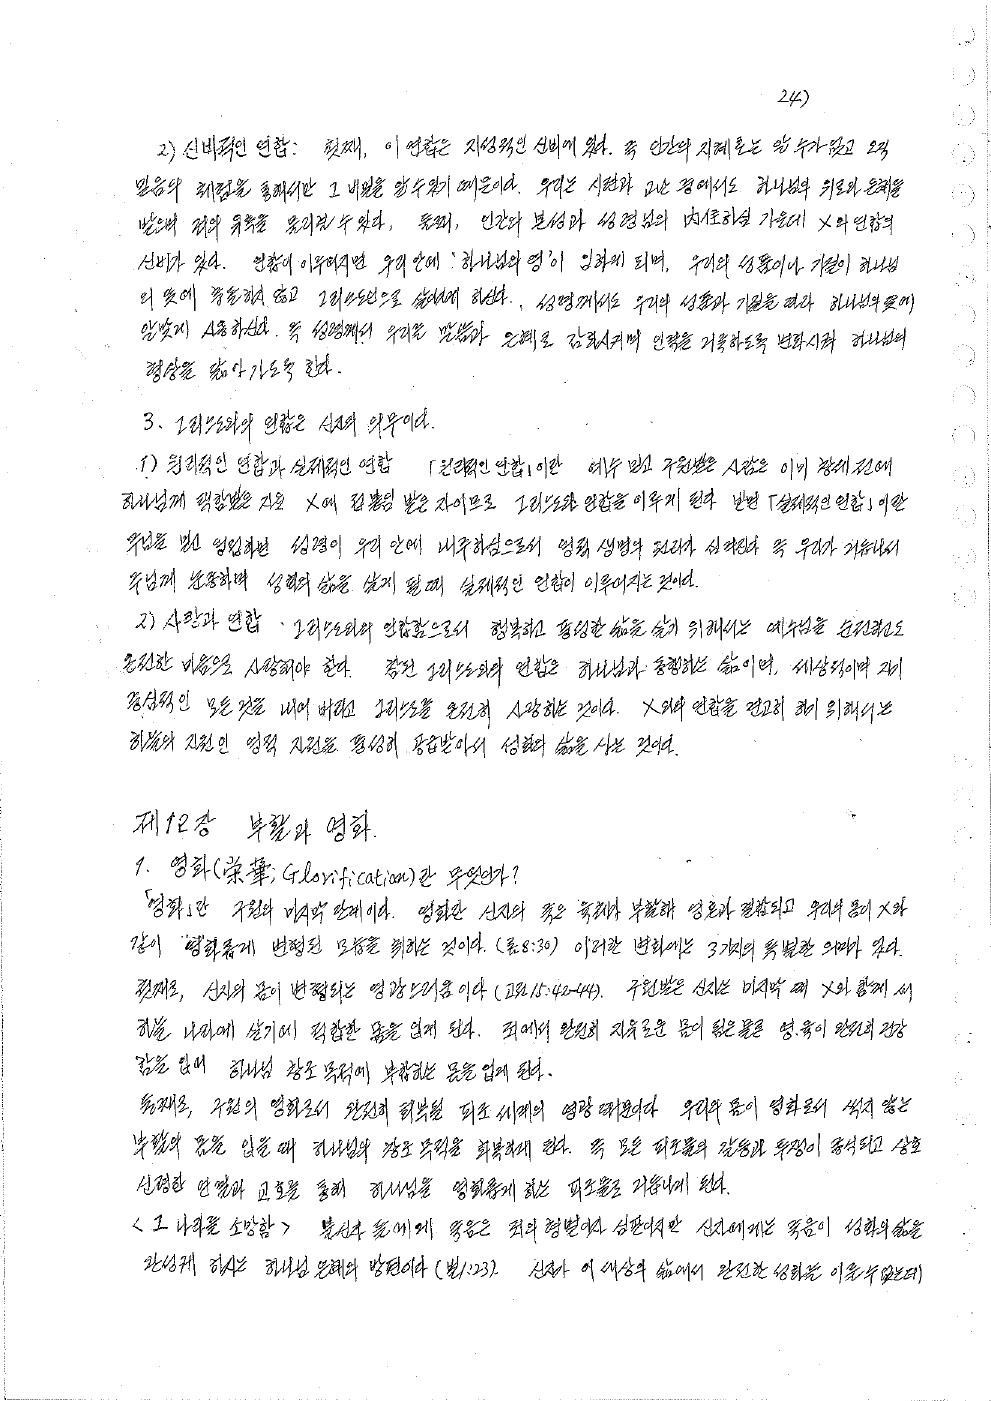 24)
2) 신비적인 연합: 첫째, 이 연합은 지성적인 신비에 있다. 즉 인간의 지혜로는 알 수가 없고 오직
믿음의 체험을 통해서만 그 비밀을 알 수 있기 때문이다. 우리는 시련과 고난 중에서도 하나님의 위로와 은혜를
받으며 죄의 유혹을 물리칠 수 있다. 둘째, 인간의 본성과 성령님의 内住하심 가운데 X와 연합의
신비가 있다. 연합이 이루어지면 우리 안에 '하나님의 영'이 임하게 되며, 우리의 성품이나 기질이 하나님
의 뜻에 하지 않고 그리스도인으로 하신다. 성령께서도 우리의 성품과 기질을 따라 하나님의 뜻에
알맞게 사용하신다. 즉 성령께서 우리를 말씀과 은혜로 감화시키며 언약을 하도록 변화시켜 하나님의
형상을 닮아가도록 한다.
3. 그리스도와의 연합은 신자의 의무이다.
1) 원리적인 연합과 실제적인 연합 「원리적인 연합」이란 예수 믿고 구원받은 사람은 이미 창세 전에
하나님께 택함받은 자요 X에 접붙임 받은 자이므로 그리스도와 연합을 이루게 된다 반면 「실제적인 연합」이란
주님을 믿고 영접하면 성령이 우리 안에 내주하심으로서 영적 생명의 진리가 시작된다 즉 우리가 거듭나서
주님께 순종하며 성화의 삶을 살게 될 때 실제적인 연합이 이루어지는 것이다.
2) 사랑과 연합 · 그리스도와의 연합함으로서 행복하고 풍성한 삶을 살기 위해서는 예수님을 순전하고도
온전한 마음으로 사랑해야 한다. 참된 그리스도와의 연합은 하나님과 동행하는 삶이며, 세상적이며 자기
중심적인 모든 것을 내어 버리고 그리스도를 온전히 사랑하는 것이다. X와의 연합을 견고히 하기 위해서는
하늘의 자원인 영적 자원을 풍성히 공급받아서 성화의 삶을 사는 것이다.
제12장 부활과 영화.
1. 영화(榮華; Glorification)란 무엇인가?
「영화」란 구원의 마지막 단계이다. 영화란 신자의 죽은 육체가 부활해 영혼과 결합되고 우리의 몸이 X와
같이 영화롭게 변형된 모습을 취하는 것이다. (롬8:30) 이러한 변화에는 3가지의 특별한 의미가 있다.
첫째로, 신자의 몸이 변형되는 영광스러움이다 (고전15:42-44). 구원받은 신자는 마지막 때 X와 함께 새
하늘 나라에 살기에 적합한 몸을 입게 된다. 죄에서 완전히 자유로운 몸이 됨은 물론 영.육이 완전히 건강
함을 입어 하나님 창조 목적에 부합하는 몸을 입게 된다.
둘째로, 구원의 영화로서 완전히 회복될 피조 세계의 영광 때문이다 우리의 몸이 영화로서 썩지 않는
부활의 몸을 입을 때 하나님의 창조 목적을 회복하게 된다. 즉 모든 피조물의 갈등과 투쟁이 종식되고 상호
신령한 연합과 교호를 통해 하나님을 영화롭게 하는 피조물로 거듭나게 된다.
<그 나라를 소망함> 불신자들에게 죽음은 죄의 형벌이자 심판이지만 신자에게는 죽음이 성화의 삶을
완성케 하시는 하나님 은혜의 방편이다 (빌1:23). 신자가 이 세상의 삶에서 완전한 성화를 이룰 수 없는데